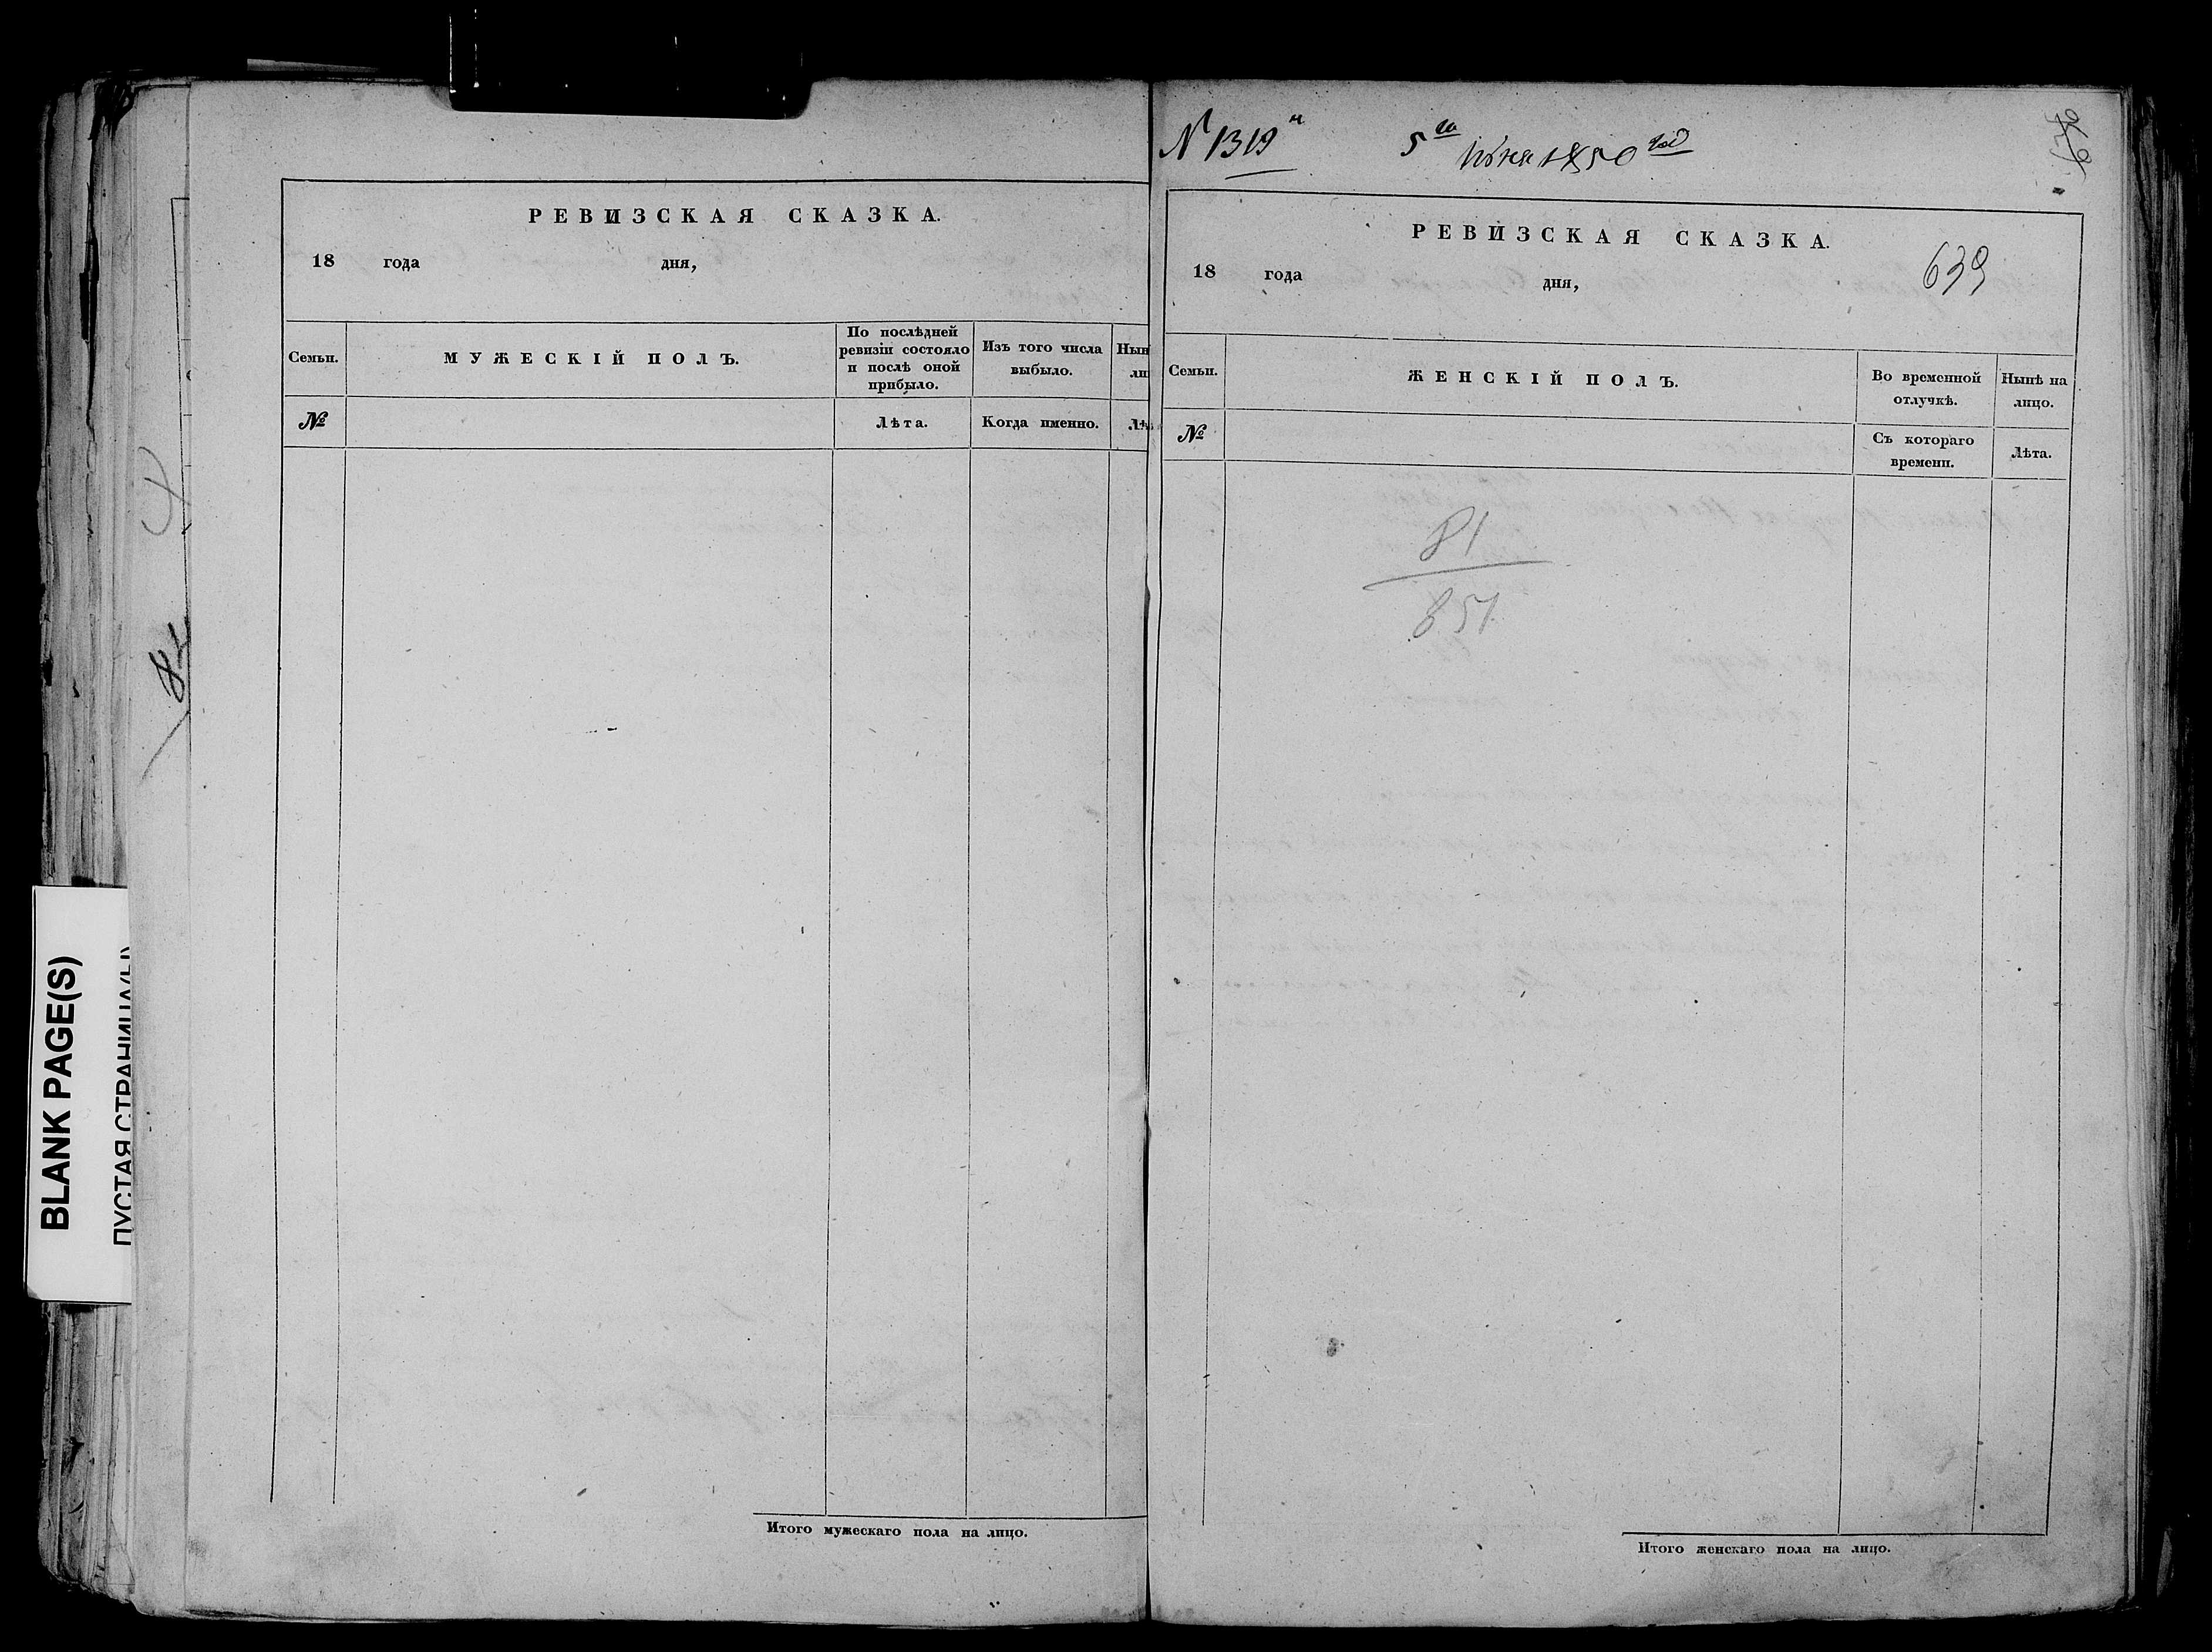 BLANK PAGE(S)
ПУСТАЯ СТРАНИЦА(Ы)
РЕВИЗСКАЯ СКАЗКА.
18 года дня,
Семьи.
МУЖЕСКІЙ ПОЛЪ.
По послѣдней
ревизіи состояло
и послѣ оной
прибыло.
Изъ того числа
выбыло.
Нын
ли
№
Лѣта.
Когда именно.
Лѣ
Итого мужескаго пола на лицо.
N 1319
5го Июня 1850 год
639
РЕВИЗСКАЯ СКАЗКА.
18 года дня,
Семьи.
ЖЕНСКІЙ ПОЛЪ.
Во временной
отлучкѣ.
Нынѣ на
лицо.
№
Съ котораго
времени.
Лѣта.
81
851
Итого женскаго пола на лицо.